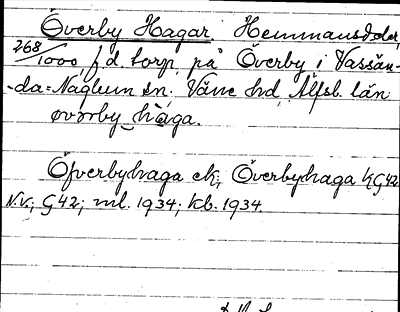 Överby Hagar. Hemmansdelar,
268/1000, f d torp, på Överby i Vassän-
-da-Naglum sn. Väne hd, Älfsb. län
øvərby_hàga.
Öfverbyhaga ek; Överbyhaga k, G42
N.V; G42; ml. 1934; kb. 1934.